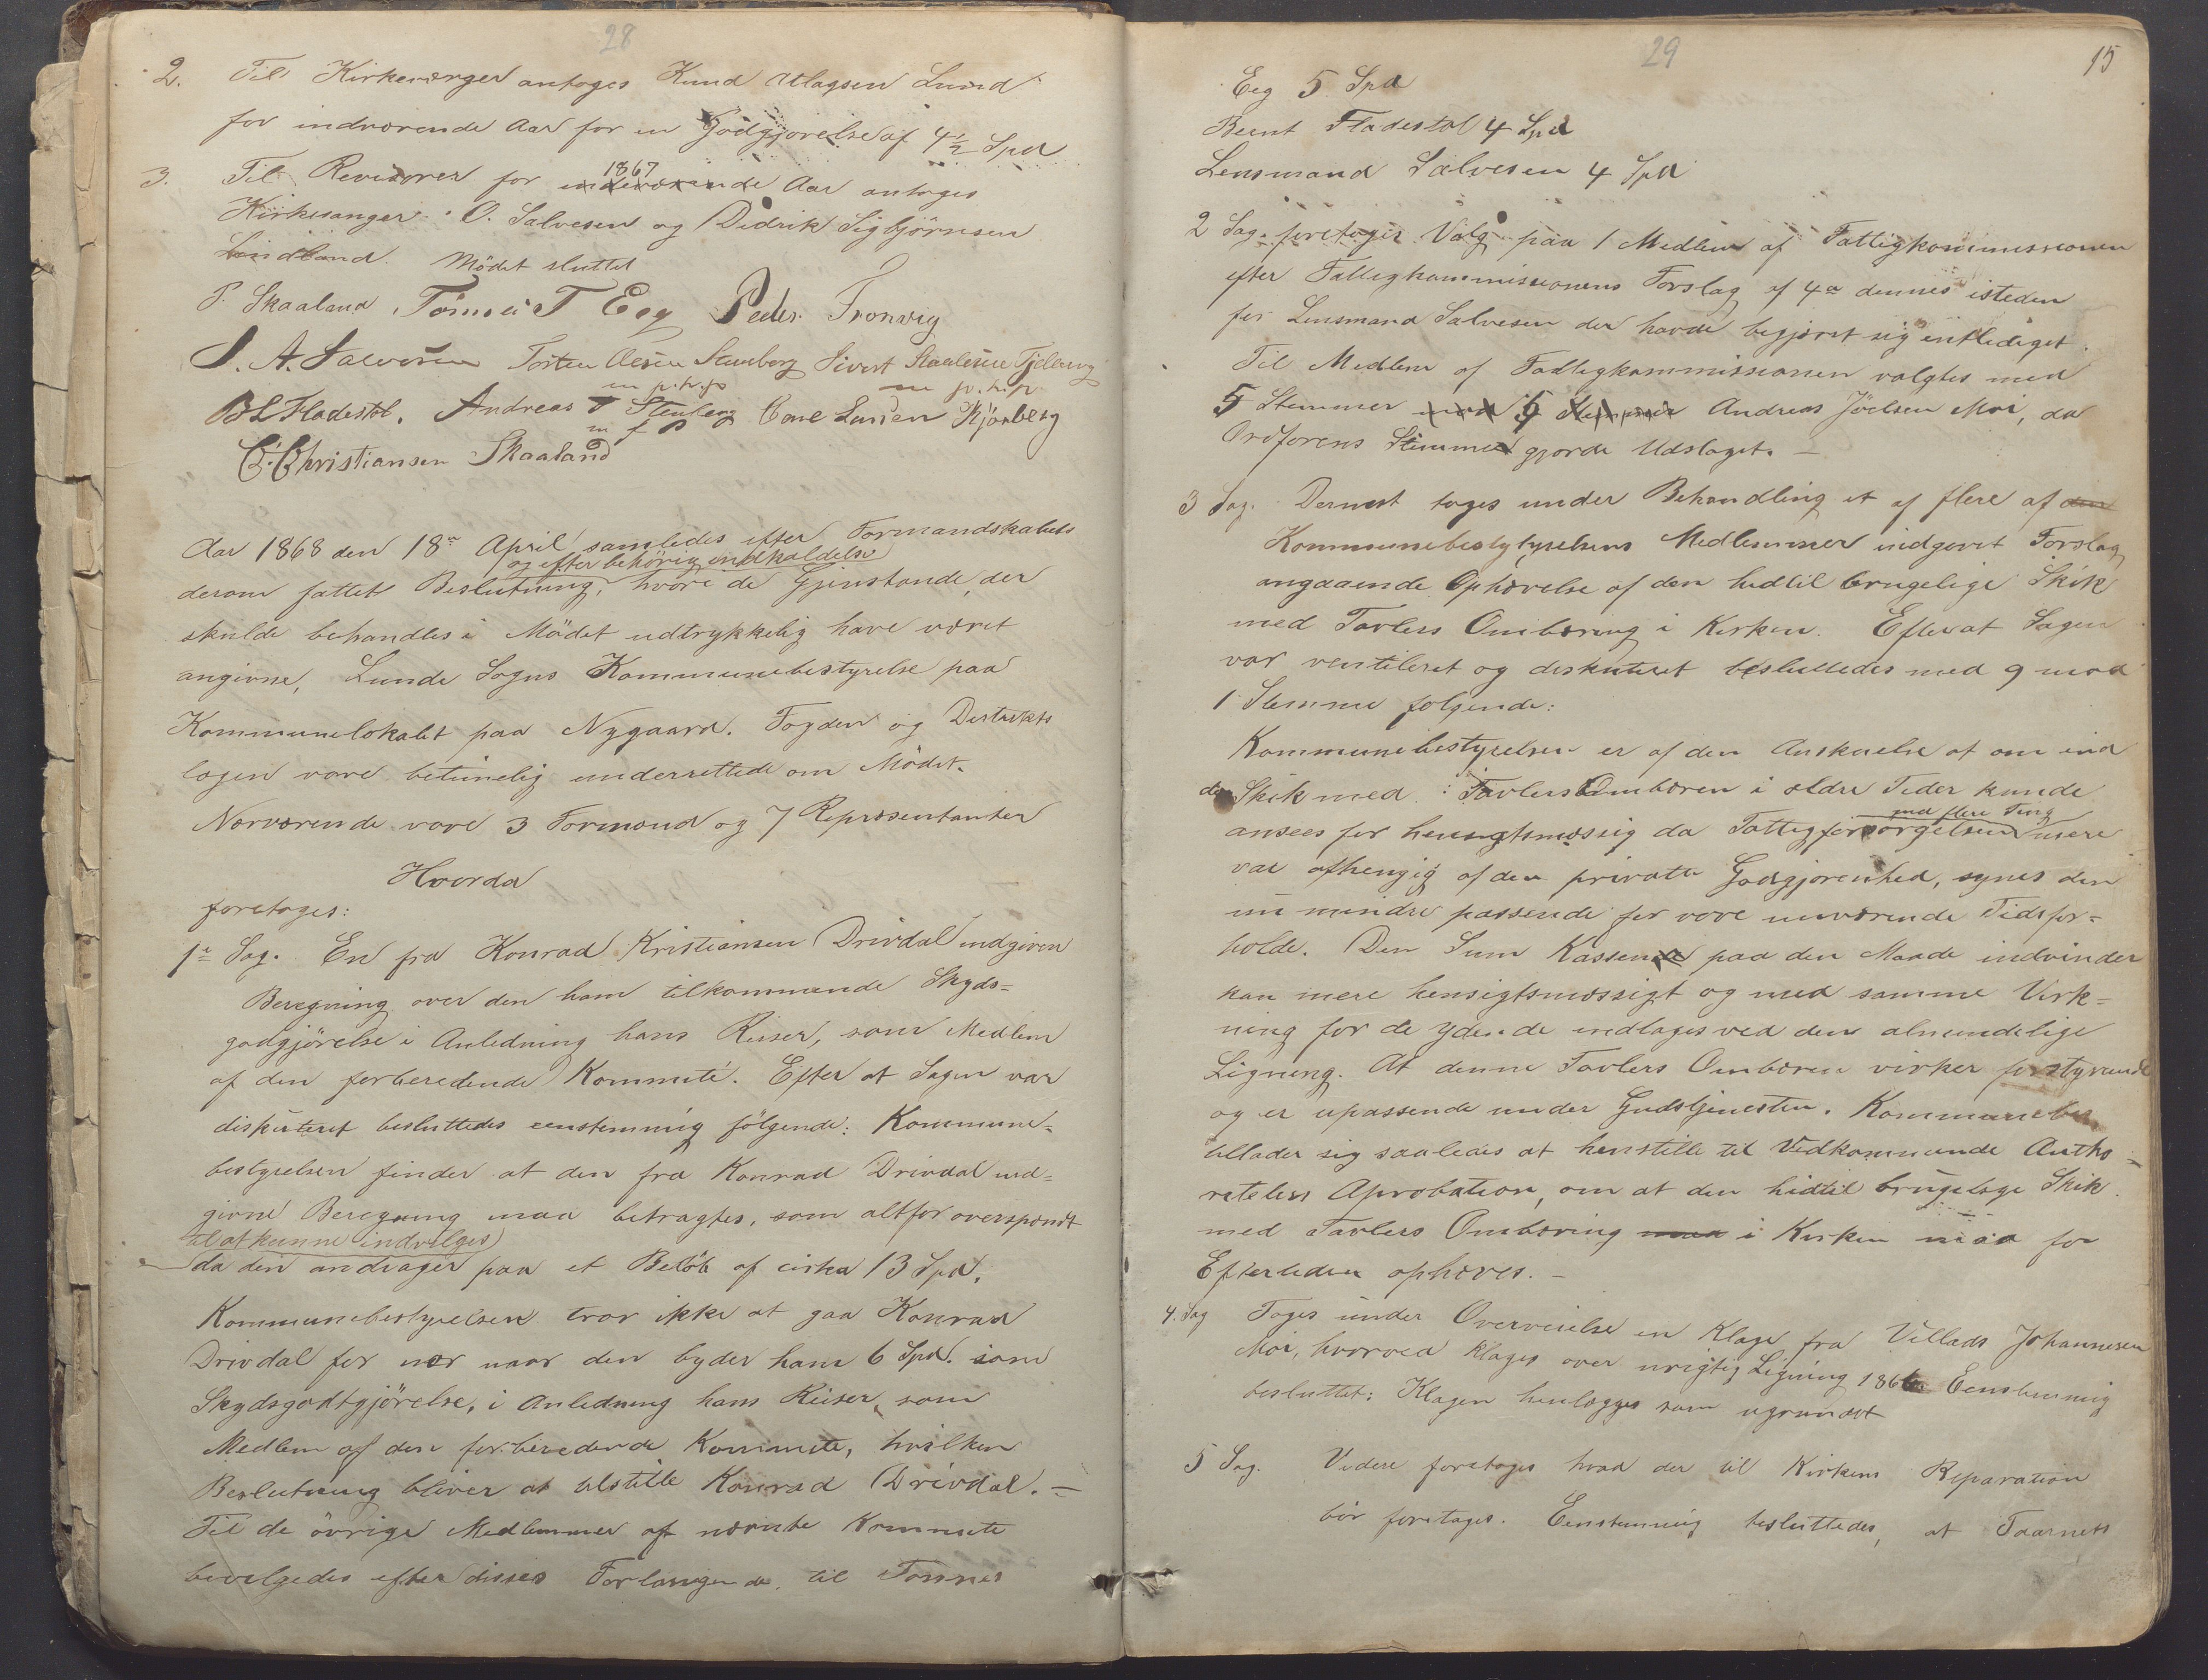 28
2. Til Kirkeværger antoges Knud Atlagsen Lund
for indværende Aar for en Godtgjørelse af 4 1/2 Spd
3. Til Revisorer for indeværende 1867 Aar antoges
Kirkesanger O. Salvesen og Didrik Sigbjörnsen
Lindland. Mödet sluttet
P. Skaaland Tönnes T Eeg Peder Tronvig
S. A. Salvesen Torsten Olesen Stenberg Sivert Staalesen
m p. h. p m p. h. p
B L Fladestöl. Andreas T Stenberg Carl Larsen Kjönberg
C. Christiansen Skaaland
Aar 1868 den 18de April samledes efter Formandskabets
og efter behörig indkaldelse
derom fattet Beslutning, hvori de Gjenstande, der
skulde behandles i Mödet udtrykkelig have været
angivne, Lunde Sogns Kommunebestyrelse paa
Kommunelokalet paa Nygaard. Fogden og Distrikts
lægen vare betimelig underrettede om Mödet.
Nærværende vare 3 Formænd og 7 Repræsentanter
Hvorda
foretoges:
1e Sag. En fra Konrad Kristiansen Drivdal indgiven
Beregning over den ham tilkommende Skyds=
godtgjörelse i Anledning hans Reiser, som Medlem
af den forberedende Kommité. Efter at Sagen var
disputeret besluttedes eenstemmig fölgende: Kommune=
bestyrelsen finder at den fra Konrad Drivdal ind=
givne Beregning maa betragtes, som altfor overspændt
til at kunne indvilges
da den andrager paa et Belöb af cirka 13 Spd.
Kommunebestyrelsen tror ikke at gaa Konrad
Drivdal for nær naar den byder ham 6 Spd. som
Skydsgodtgjörelse, i Anledning hans Reiser, som
Medlem af den forberedende Kommite, hvilken
Beslutning bliver at tilstille Konrad Drivdal. —
Til de övrige Medlemmer af nævnte Kommite
bevilgedes efter disses Forlangende til Tönnes
29
15
Eeg 5 Spd
Bernt Fladestöl 4 Spd
Lensmand Salvesen 4 Spd
2 Sag. foretoges Valg paa 1 Medlem af Fattigkommissionen
efter Fattigkommissionens Forslag af 4de dennes isteden
for Lensmand Salvesen der havde begjæret sig entlediget.
Til Medlem af Fattigkommissionen valgtes med
5 Stemmer mod 5 Stemmer Andreas Jöelsen Moi, da
Ordförens Stemme gjorde Udslaget. —
3 Sag. Dernæst toges under Behandling et af flere af den
Kommunebestytyrelsens Medlemmer indgivet Forslag
angaaende Ophævelse af den hidtil brugelige Skik
med Tavlers Ombæring i Kirken. Efterat Sagen
var ventileret og diskuteret besluttedes med 9 mod
1 Stemme følgende:
Kommunebestyrelsen er af den Anskuelse at om end
den Skik med Tavlers Ombæren i ældre Tider kunde
ansees for hensigtsmæssig da Fattigforsörgelsen med flere Ting mere
var afhengig af den private Godgjørenhed, synes den
nu mindre passende for vore nuværende Tidsfor=
holde. Den Sum Kassen paa den Maade indvinder
kan mere hensigtsmæssigt og med samme Virk=
ning for de ydende indtages ved den almindelige
Ligning. At denne Tavlers Ombæren virker forstyrrende
og er upassende under Gudstjenesten. Kommunebes
tillader sig saaledes at henstille til Vedkommende Autho=
riteters Aprobation, om at den hidtil brugelige Skik
med Tavlers Ombæring maa i Kirken maa for
Eftertiden ophæves. —
4. Sag Toges under Overveielse en Klage fra Villads Johannesen
Moi, hvorved klages over urigtig Ligning 1868 Eenstemmig
besluttet: Klagen henlægges som ugrundet
5 Sag. Videre foretoges hvad der til Kirkens Reparation
bör foretages. Eenstemmig besluttedes, at Taarnets